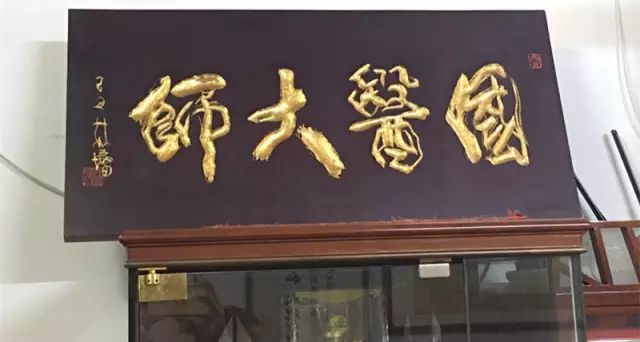 國醫大師